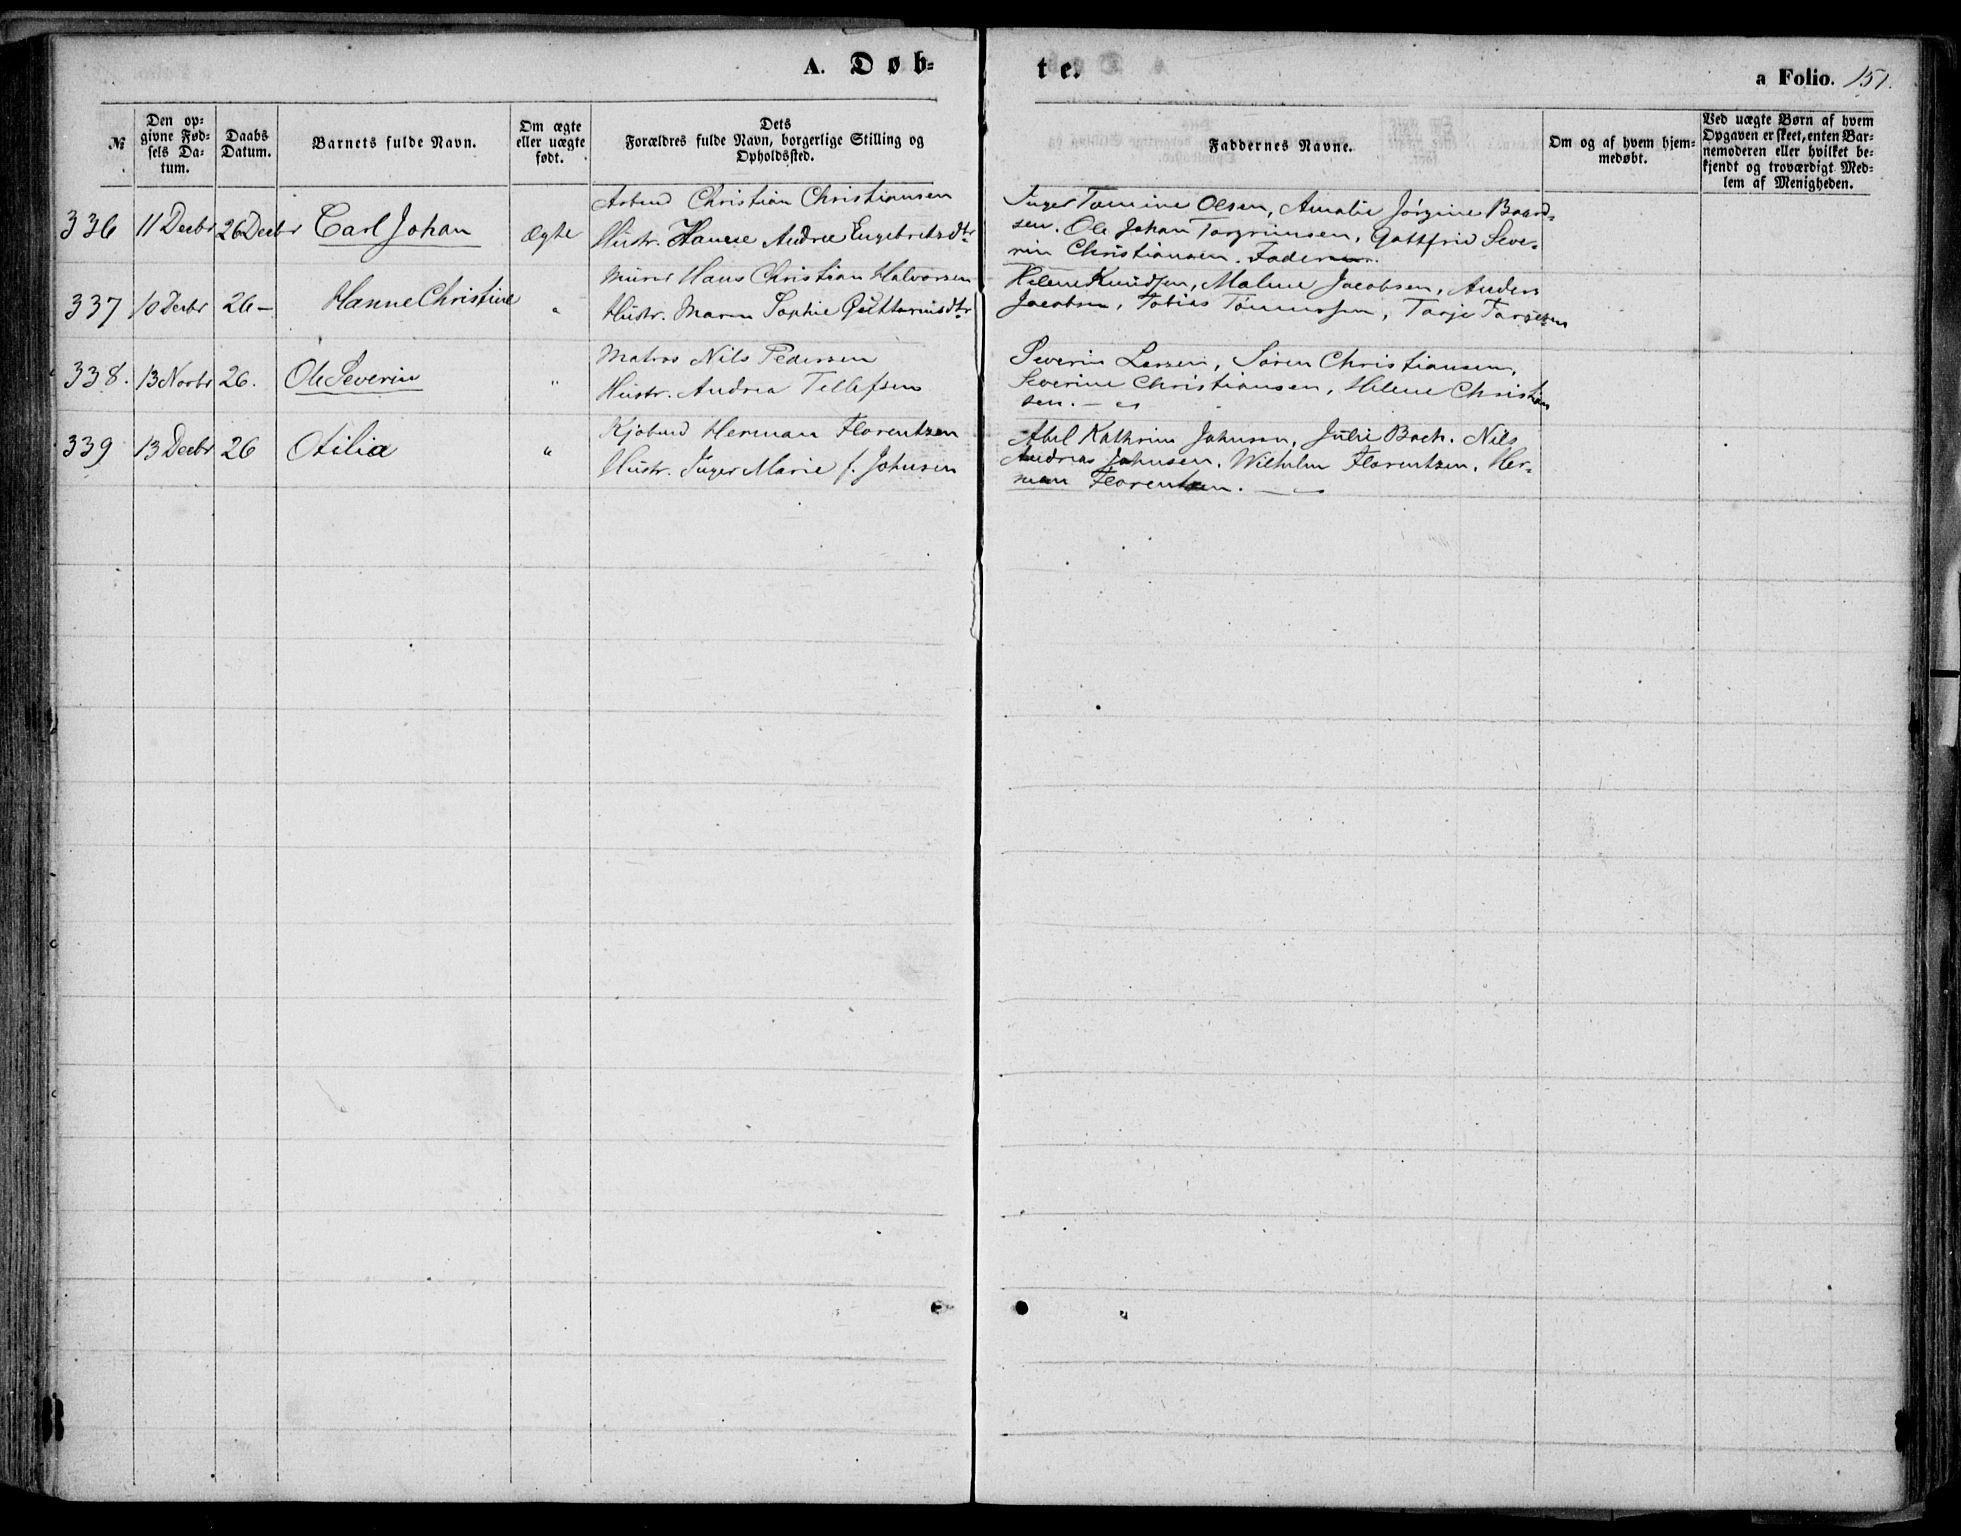 A. Døb-
te.
a Folio. 151.
№
Den op-
givne Fød-
sels Da-
tum.
Daabs
Datum.
Barnets fulde Navn.
Om ægte
eller uægte
født.
Dets
Forældres fulde Navn, borgerlige Stilling og
Opholdssted.
Faddernes Navne.
Om og af hvem hjem-
medøbt.
Ved uægte Børn af hvem
Opgaven er skeet, enten Bar-
nemoderen eller hvilket be-
kjendt og troværdigt Med-
lem af Menigheden.
336 11 Decbr 26 Decbr Carl Johan Ægte
Arbmd Christian Christiansen
Hustr. Andrea Engebritsdtr
Inger Tomine Olsen, Amalie Jørgine Baard-
sen. Ole Johan Torgrimsen, Gottfrid Seve-
rin Christiansen. Faderen.
337 10 Decbr 26 — Hanne Christine "
Murer Hans Christian Halvorsen
Hustr. Maren Sophie Guttormsdtr
Helene Knudsen, Maline Jacobsen, Anders
Jacobsen, Tobias Tønnessen, Tarje Tarjesen
338. 13 Novbr 26. Ole Severin "
Matros Nils Pedersen
Hustr. Andrea Tellefsen
Severin Larsen, Søren Christiansen,
Severine Christiansen, Helene Christian
sen. —
339 13 Decbr 26 Otilia "
Kjøbmd Herman Florentzen
Hustr. Inger Marie f. Johnsen
Abel Kathrine Johnsen, Julie Bach. Nils
Andreas Johnsen. Wilhelm Florentzen. Her-
man Florentzen. —